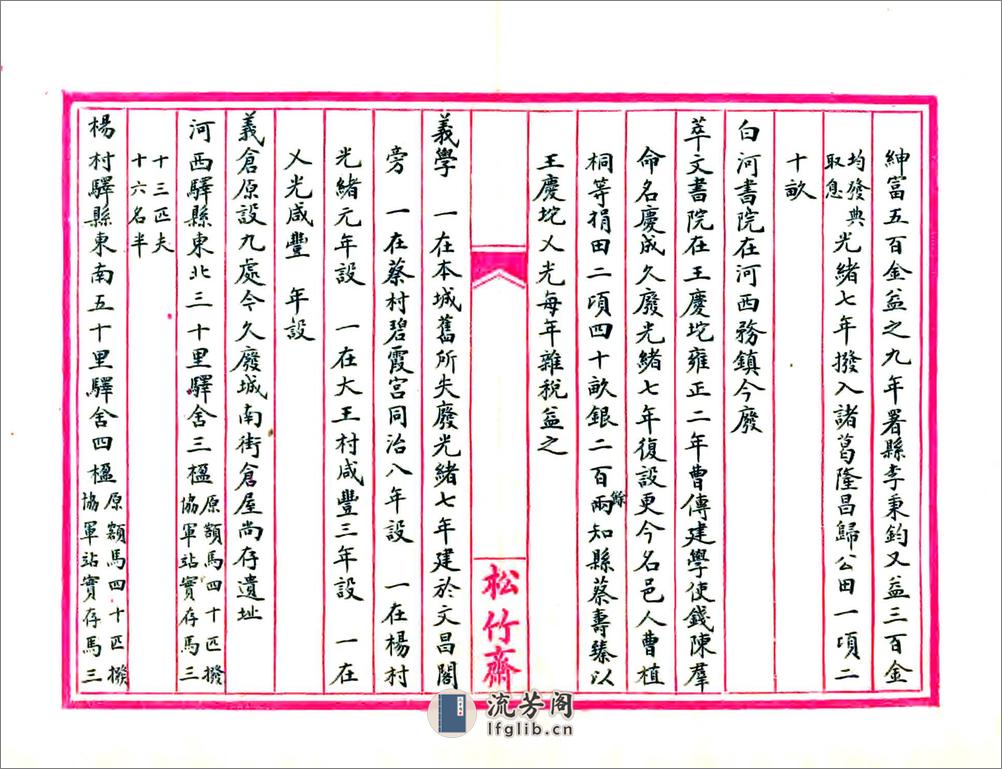 紳富五百金益之九年署縣李秉鈞又益三百金
均發典取息光緒七年撥入諸葛隆昌歸公田一頃二
十畝
白河書院在河西務鎮今廢
萃文書院在王慶坨雍正二年曹傳建學使錢陳羣
命名慶成久廢光緒七年復設更今名邑人曹植
桐等捐田二頃四十畝銀二百餘兩知縣蔡壽臻以
王慶坨乂光每年雜稅益之
松竹齋
義學 一在本城舊所失廢光緒七年建於文昌閣
旁 一在蔡村碧霞宮同治八年設 一在楊村
光緒元年設 一在大王村咸豐三年設 一在
乂光咸豐 年設
義倉原設九處今久廢城南街倉屋尚存遺址
河西驛縣東北三十里驛舍三楹原額馬四十匹撥協軍站實存馬三
十三匹夫十六名半
楊村驛縣東南五十里驛舍四楹原額馬四十匹撥協軍站實存馬三
流芳阁
lfglib.cn